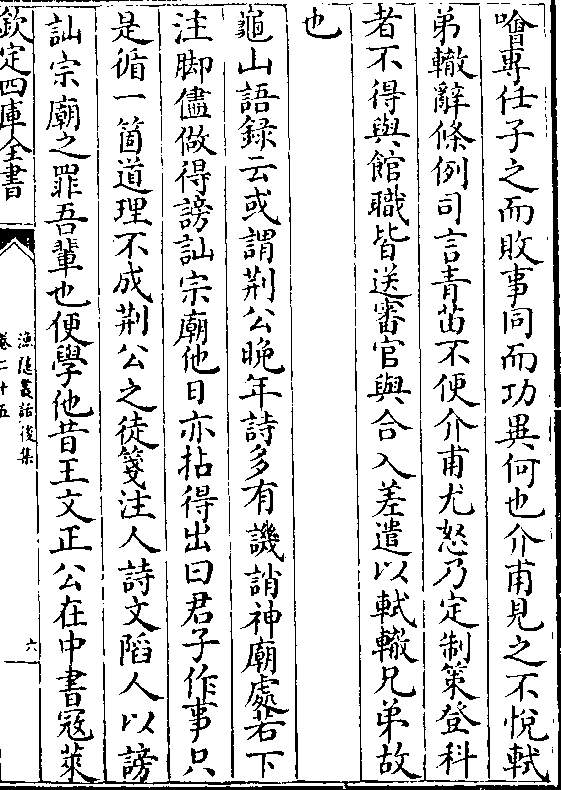 噲專任子之而敗事同而功異何也介甫見之不悅軾
弟轍辭條例司言青苗不便介甫尤怒乃定制策登科
者不得與館職皆送審官與合入差遣以軾轍兄弟故
也
龜山語録云或謂荆公晚年詩多有譏誚神廟處若下
注脚儘做得謗訕宗廟他日亦拈得出曰君子作事只
是循一箇道理不成荆公之徒箋注人詩文陷人以謗
訕宗廟之罪吾輩也便學他昔王文正公在中書寇萊
欽定四庫全書
漁隱叢話後集
卷二十五
六